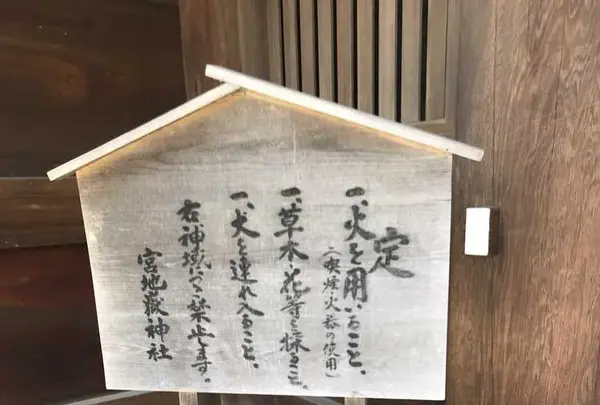 定
一、火を用いること、
(喫煙・火器の使用)
一、草木・花等を採ること、
一、犬を連れ入ること、
右神域にて禁止します。
宮地嶽神社